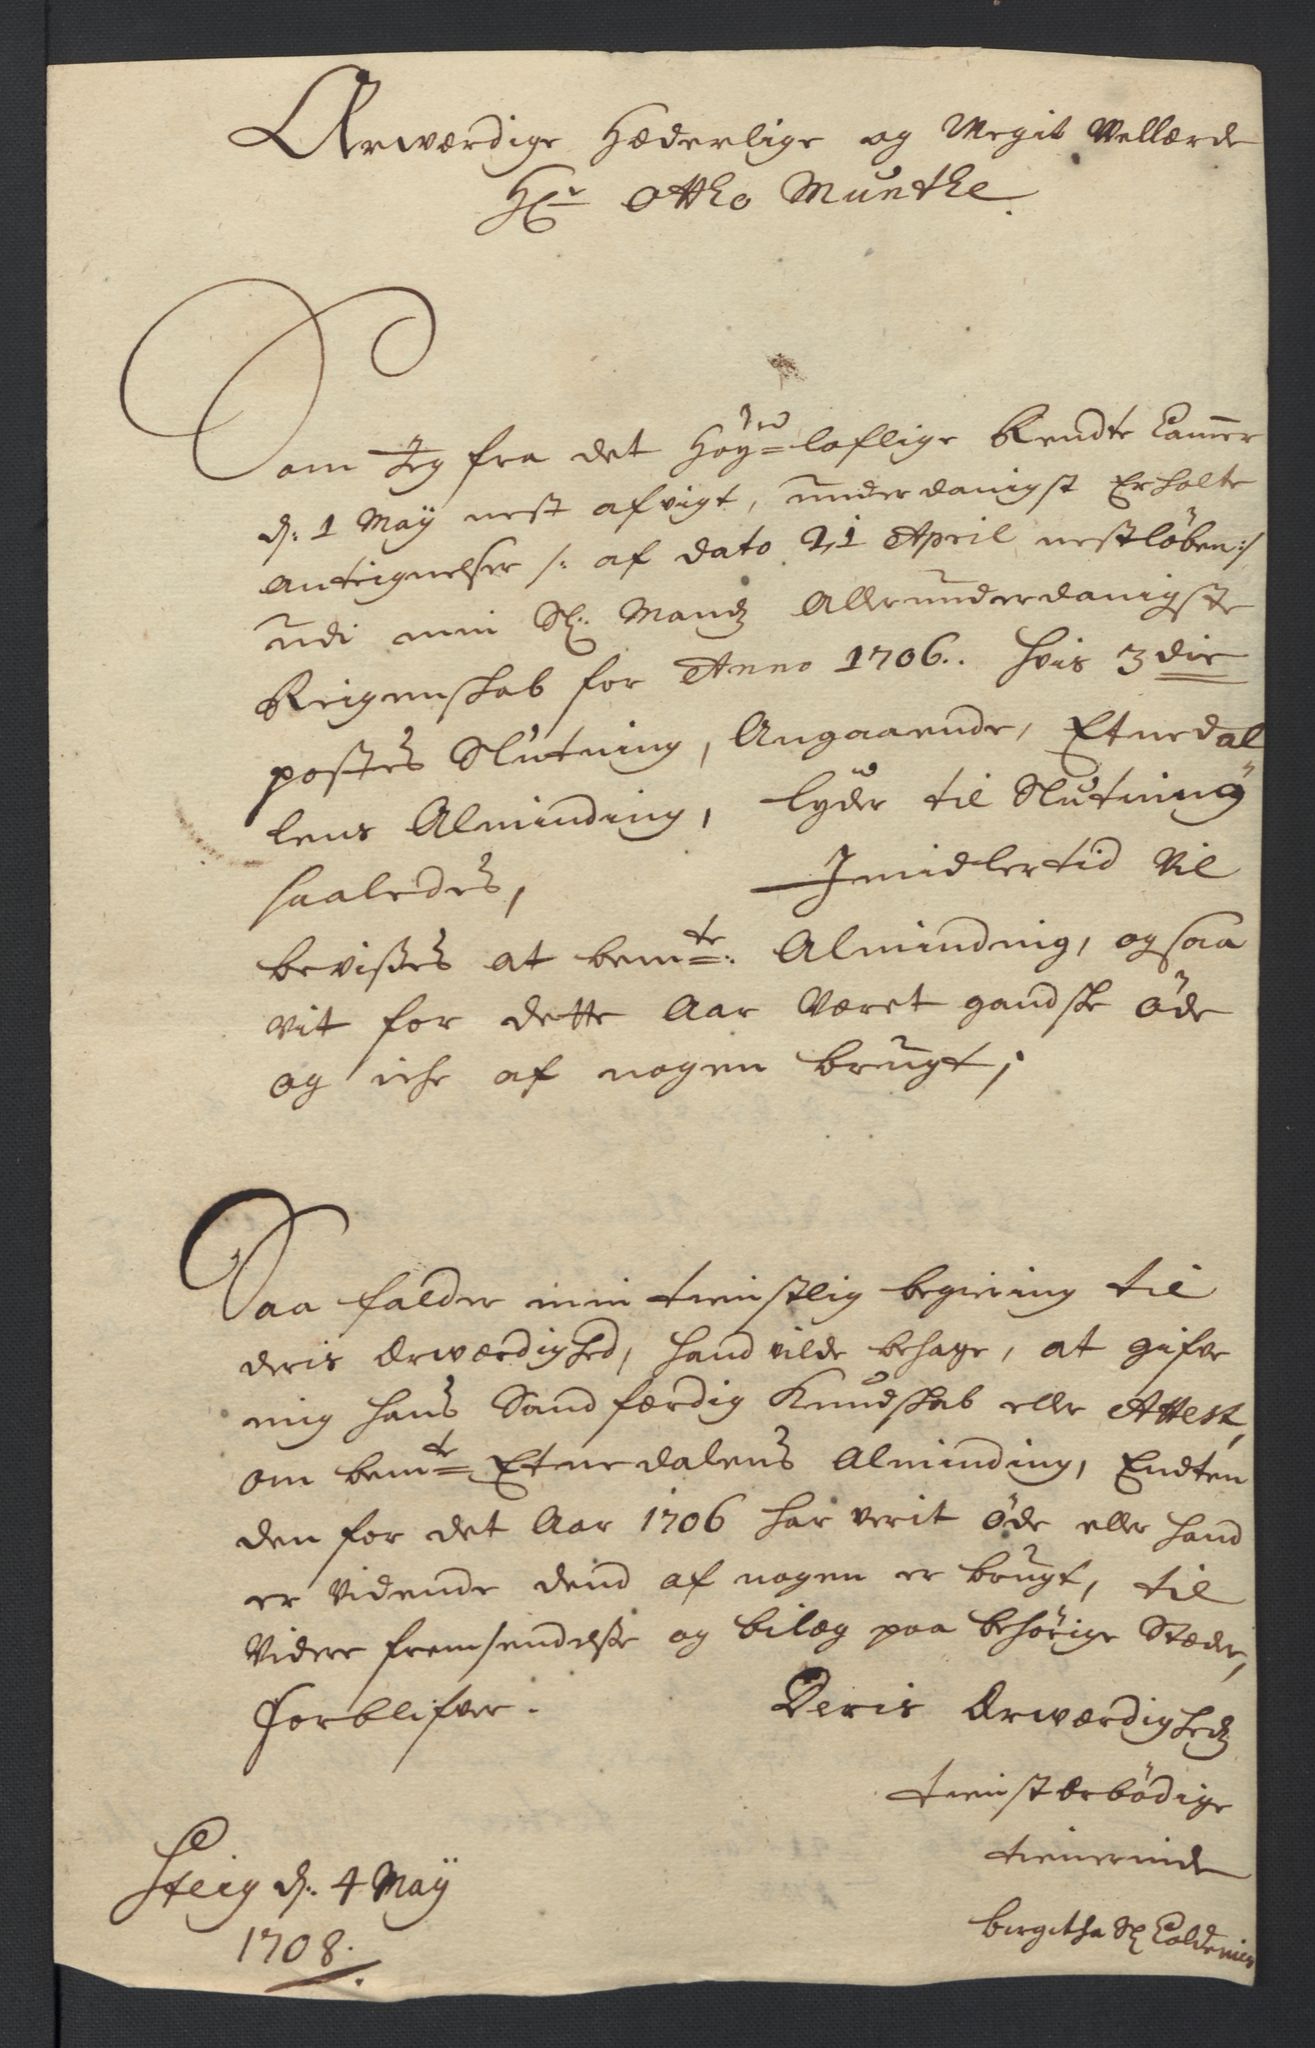 Ærwærdige Hæderlige og Megit Wellærde
Hr Ottho Munthe.
Som Jeg fra det Høy= loflige Rendte Camer
d: 1 Maÿ nest afvigt, underdanigst Erholte
Anteignelser /: af dato 21 April nestløben:/
udi min Sl: Mandz Allerunderdanigste
Reigenskab for Anno 1706.. hvis 3die
postes Slutning, Angaaende, Etnedal
lens Alminding, lyder til Slutning
saaledes, Imidlertid Vil
bevisses at bemte: Alminding, ogsaa
vit for dette Aar Været gandske øde
og iche af nogen brugt;
Saa falder min tienstlig begiering til
deris Ærwærdighed, hand vilde behage, at gifve
mig hans Sandfærdig Kundskab eller Attest,
om bemte Etnedalens Alminding, Endten
den for det Aar 1706 har verit øde eller hand
er Vidende dend af nogen er brugt, til
Videre fremsendelse og bilæg paa behørige Stæder,
Forblifver. Deris Ærwærdighedz
tienstærbødige
tienerinde
Steig d: 4 Maÿ
1708.
birgitha Sl